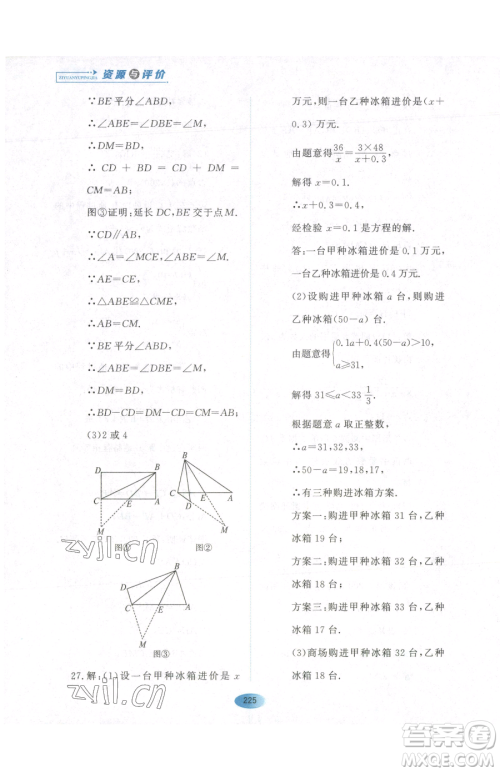 资源与评价
∵BE平分∠ABD,
∴∠ABE=∠DBE=∠M,
∴DM=BD,
∴ CD + BD = CD + DM =
CM=AB;
图③证明:延长DC,BE交于点M.
∵CD∥AB,
∴∠A=∠MCE,∠ABE=∠M.
∵AE=CE,
∴△ABE≌△CME,
∴AB=CM.
∵BE平分∠ABD,
∴∠ABE=∠DBE=∠M,
∴DM=BD,
∴BD-CD=DM-CD=CM=AB.
(3)2或4
D B C E A M
图①
B C D E A M
图②
B D C E A M
图③
27.解:(1)设一台甲种冰箱进价是x
万元,则一台乙种冰箱进价是(x+
0.3)万元.
由题意得36/x=3×48/(x+0.3),
解得x=0.1.
∴x+0.3=0.4.
经检验x是方程的解.
答:一台甲种冰箱进价是0.1万元,
一台乙种冰箱进价是0.4万元.
(2)设购进甲种冰箱a台,则购进
乙种冰箱(50-a)台.
由题意{0.1a+0.4(50-a)>10,
a≥31,
解得 31≤a<33 1/3.
根据题意a取正整数,
∴a=31,32,33,
∴50-a=19,18,17.
∴有三种购进冰箱方案.
方案一:购进甲种冰箱31台,乙种
冰箱19台;
方案二:购进甲种冰箱32台,乙种
冰箱18台;
方案三:购进甲种冰箱33台,乙种
冰箱17台.
(3)商场购进甲种冰箱32台,乙种
冰箱18台.
225
zyjl.cn
zyjl.cn